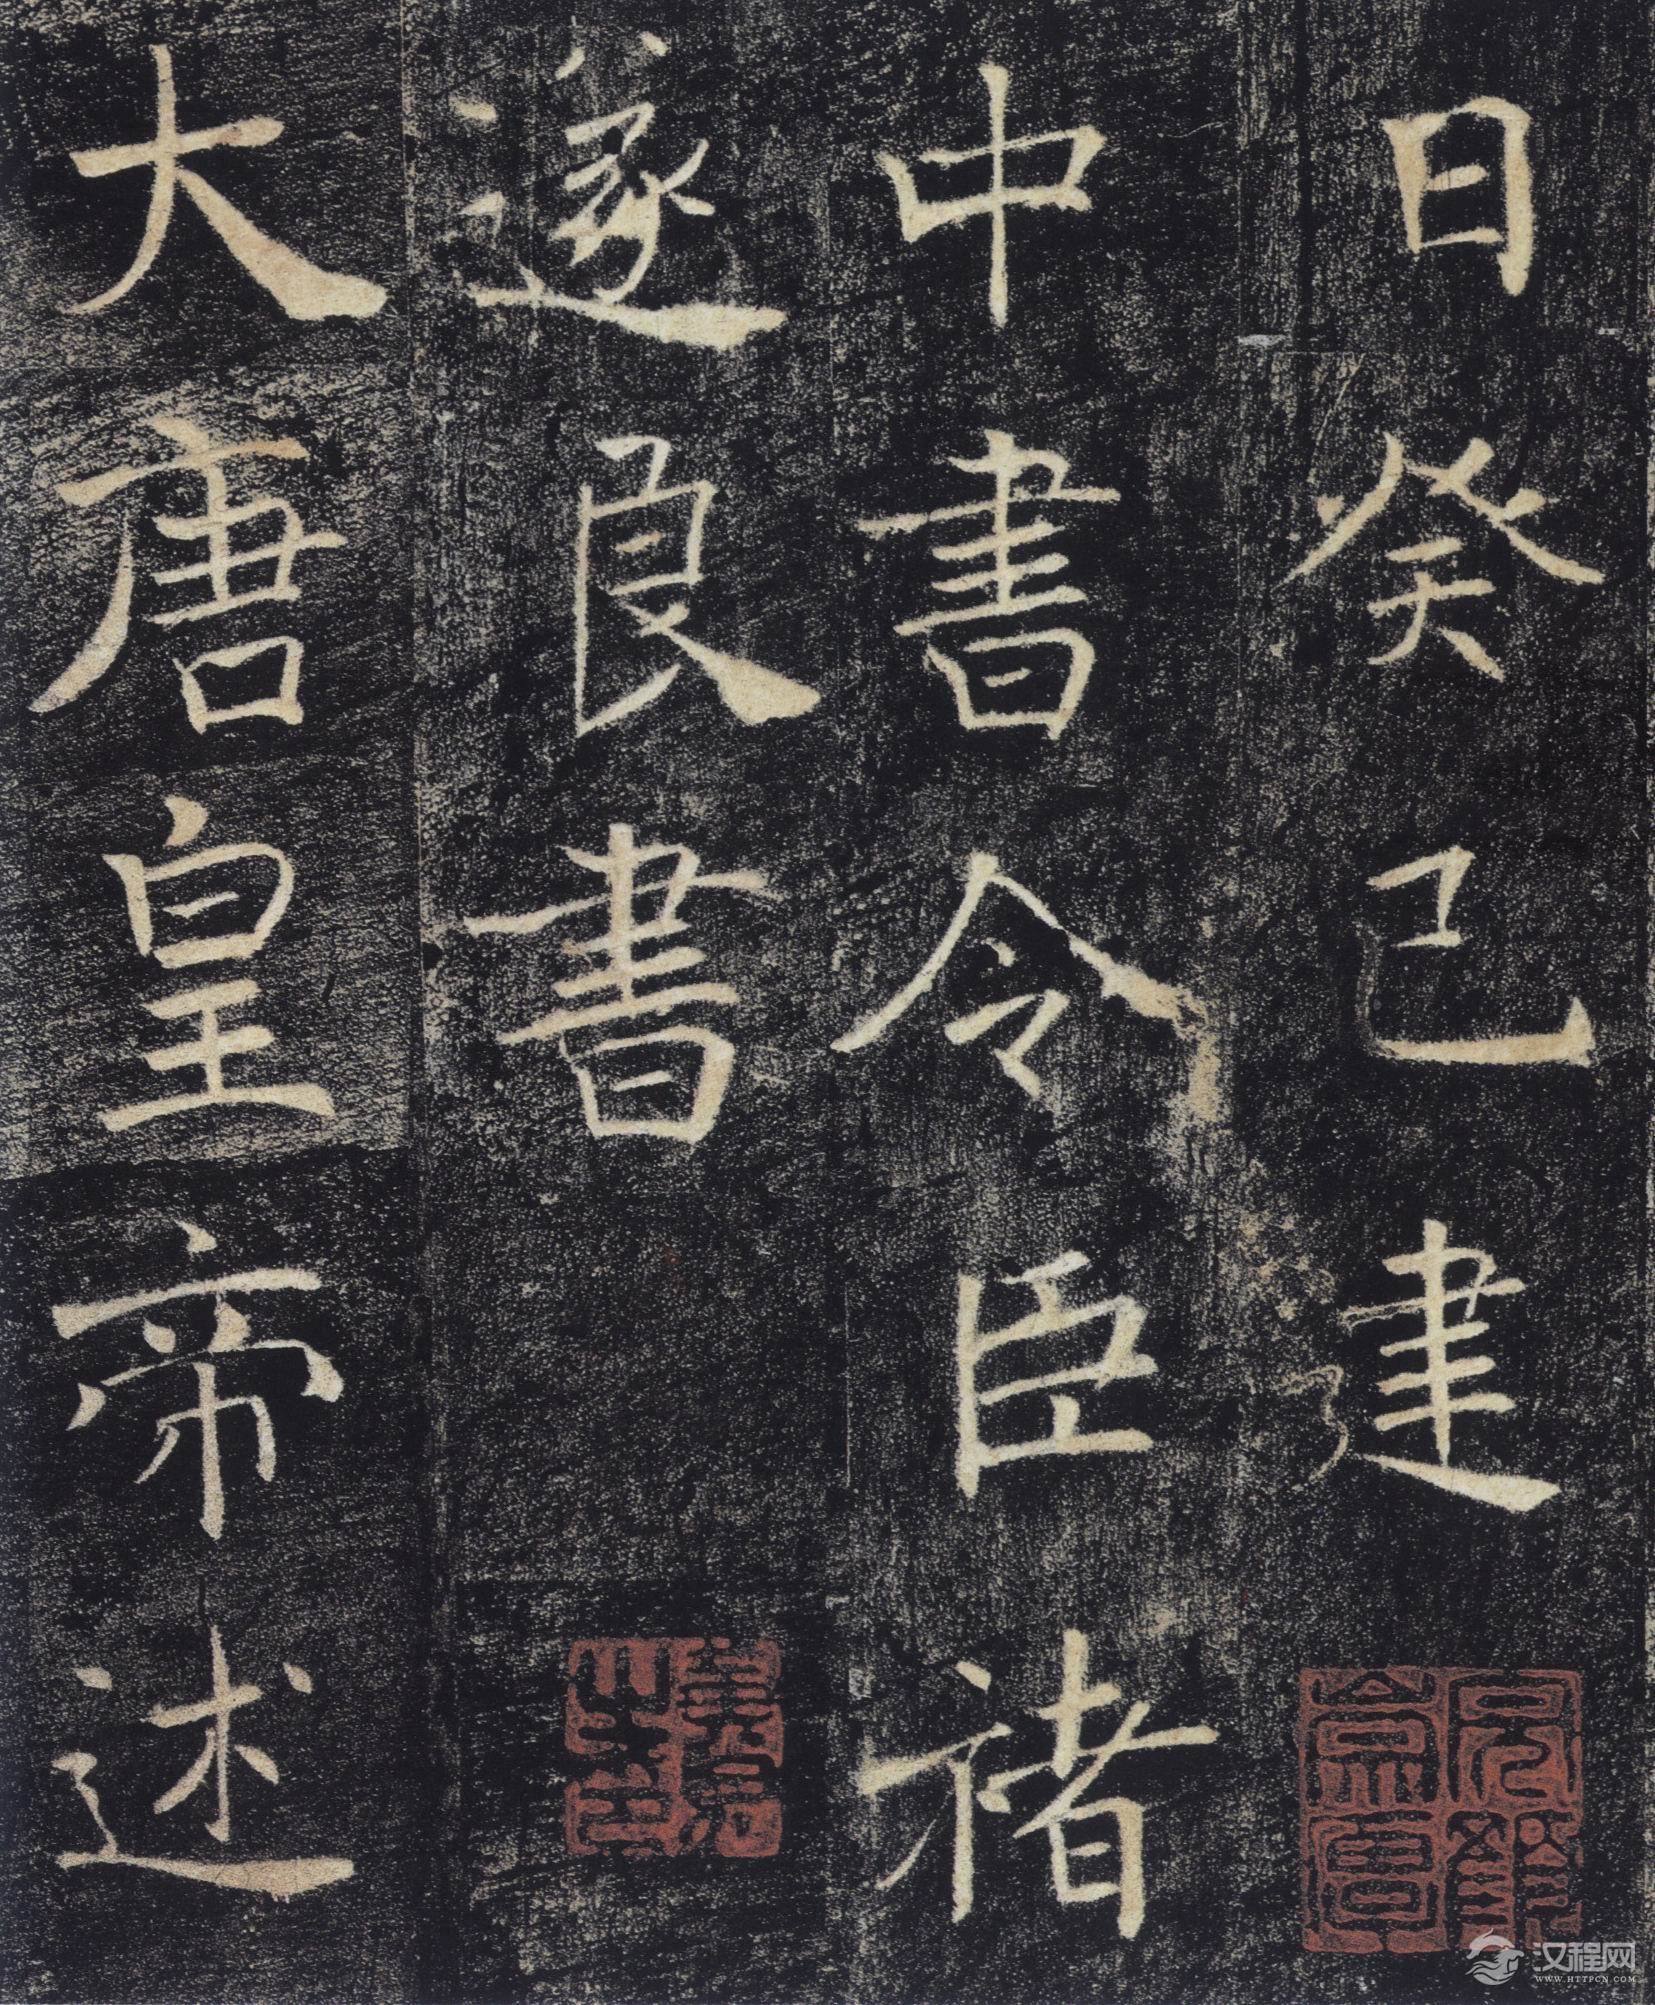 日癸巳建
中書令臣褚
遂良書
大唐皇帝述
汉程网
WWW.HTTPCN.COM